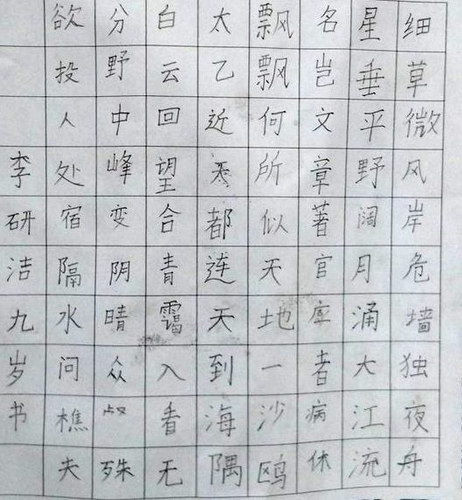 细草微风岸危墙独夜舟
星垂平野阔月涌大江流
名岂文章著官座者病休
飘飘何所似天地一沙鸥
太乙近天都连天到海隅
白云回望合青霭入看无
分野中峰变阴晴众殊
欲投人处宿隔水问樵夫
李研洁九岁书